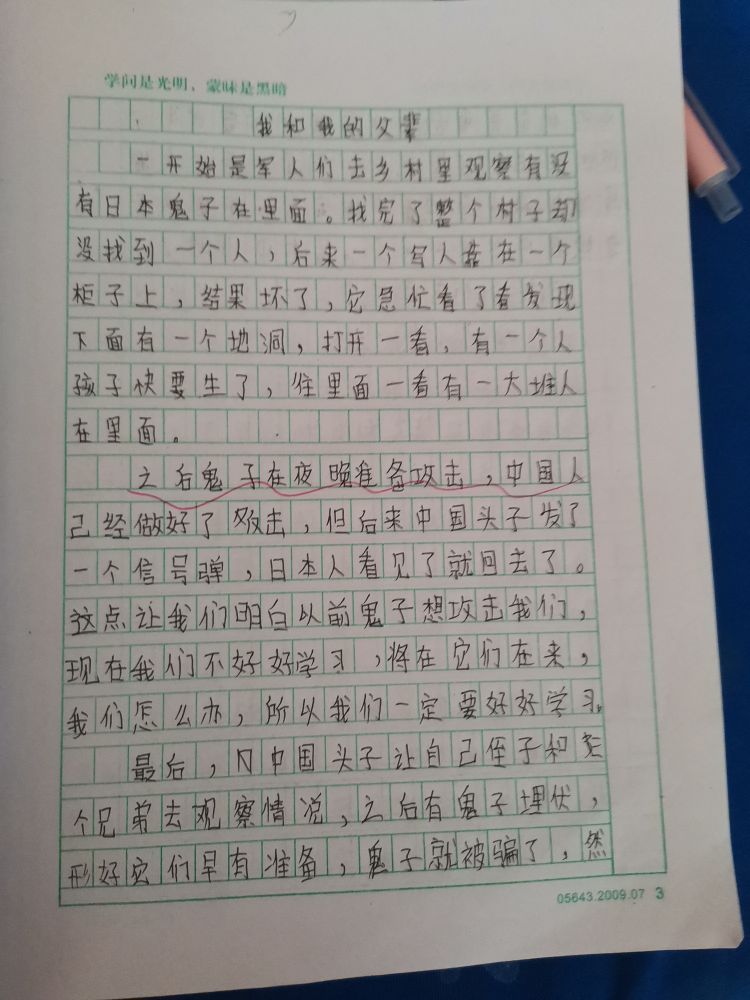 学问是光明、蒙昧是黑暗
我和我的父辈
一开始是军人们去乡村里观察有没
有日本鬼子在里面。找完了整个村子却
没找到一个人，后来一个军人靠在一个
柜子上，结果坏了，它急忙看了看发现
下面有一个地洞，打开一看，有一个人
孩子快要生了，往里面一看有一大堆人
在里面。
之后鬼子在夜晚准备攻击，中国人
己经做好了攻击，但后来中国头子发了
一个信号弹，日本人看见了就回去了。
这点让我们明白以前鬼子想攻击我们，
现在我们不好好学习，将在它们在来，
我们怎么办，所以我们一定要好好学习。
最后，中国头子让自己侄子和
个兄弟去观察情说，之后有鬼子埋伏，
形好它们早有准备，鬼子就被骗了，然
05643.2009.07 3